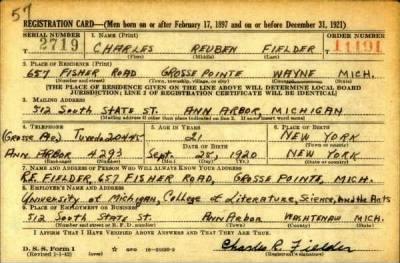 57
REGISTRATION CARD—(Men born on or after February 17, 1897 and on or before December 31, 1921)
SERIAL NUMBER 1. NAME (Print) ORDER NUMBER
2719 CHARLES REUBEN FIELDER 11191
2. PLACE OF RESIDENCE (Print)
657 FISHER ROAD GROSSE POINTE WAYNE MICH.
(Number and street) (Town, township, village, or city) (County) (State)
[THE PLACE OF RESIDENCE GIVEN ON THE LINE ABOVE WILL DETERMINE LOCAL BOARD
JURISDICTION; LINE 2 OF REGISTRATION CERTIFICATE WILL BE IDENTICAL]
3. MAILING ADDRESS
512 SOUTH STATE ST. ANN ARBOR, MICHIGAN
[Mailing address if other than place indicated on line 2. If same insert word same]
4. TELEPHONE 5. AGE IN YEARS 6. PLACE OF BIRTH
(GROSSE PTE.) Tuxedo 20445 21 NEW YORK
DATE OF BIRTH (Town or county)
ANN ARBOR 4293 Sept. 28, 1920 NEW YORK
(Exchange) (Number) (Mo.) (Day) (Yr.) (State or country)
7. NAME AND ADDRESS OF PERSON WHO WILL ALWAYS KNOW YOUR ADDRESS
R.E. FIELDER, 657 FISHER ROAD, GROSSE POINTE, MICH.
8. EMPLOYER'S NAME AND ADDRESS
University of Michigan, College of Literature, Science, and the Arts
9. PLACE OF EMPLOYMENT OR BUSINESS
512 South State St. Ann Arbor WASHTENAW MICH.
(Number and street or R. F. D. number) (Town) (County) (State)
I AFFIRM THAT I HAVE VERIFIED ABOVE ANSWERS AND THAT THEY ARE TRUE.
D. S. S. Form 1 GPO
(Revised 1-1-42) Charles R. Fielder
(Registrant's signature)